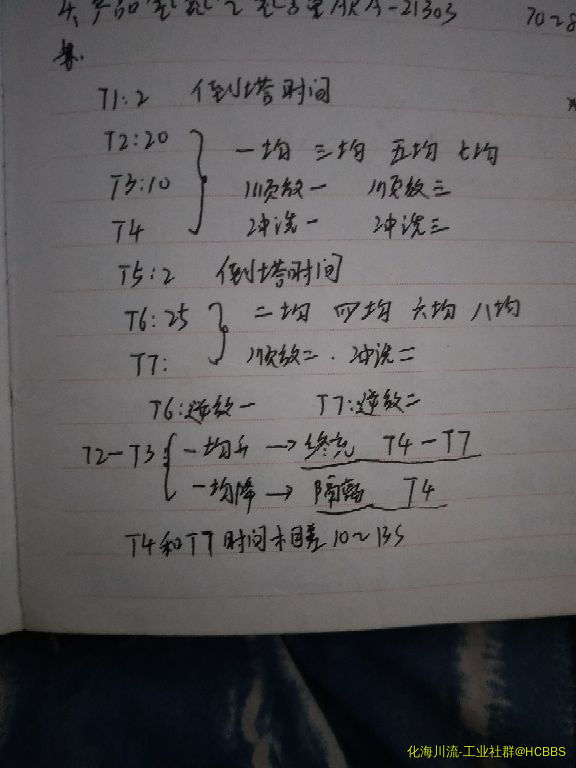 4、产品氢氮气氢含量ARA-21303 70~8
T1:2 倒塔时间
T2:20 一均 三均 五均 七均
T3:10 顺放一 顺放三
T4 冲洗一 冲洗三
T5:2 倒塔时间
T6:25 二均 四均 六均 八均
T7: 顺放二. 冲洗二
T6:逆放一 T7:逆放二
T2-T3 一均升→终充 T4-T7
一均降→隔离 T4
T4和T7时间相差10~13S
化海川流-工业社群@HCBBS